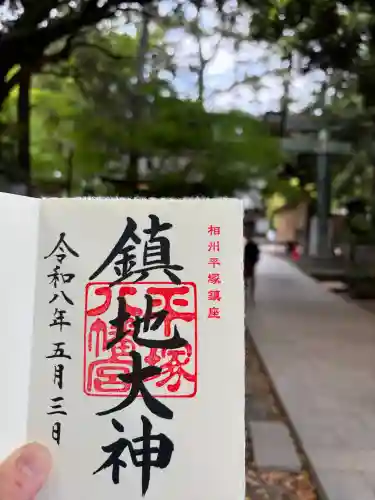 相州平塚鎮座
鎮地大神
平塚八幡宮
令和八年五月三日